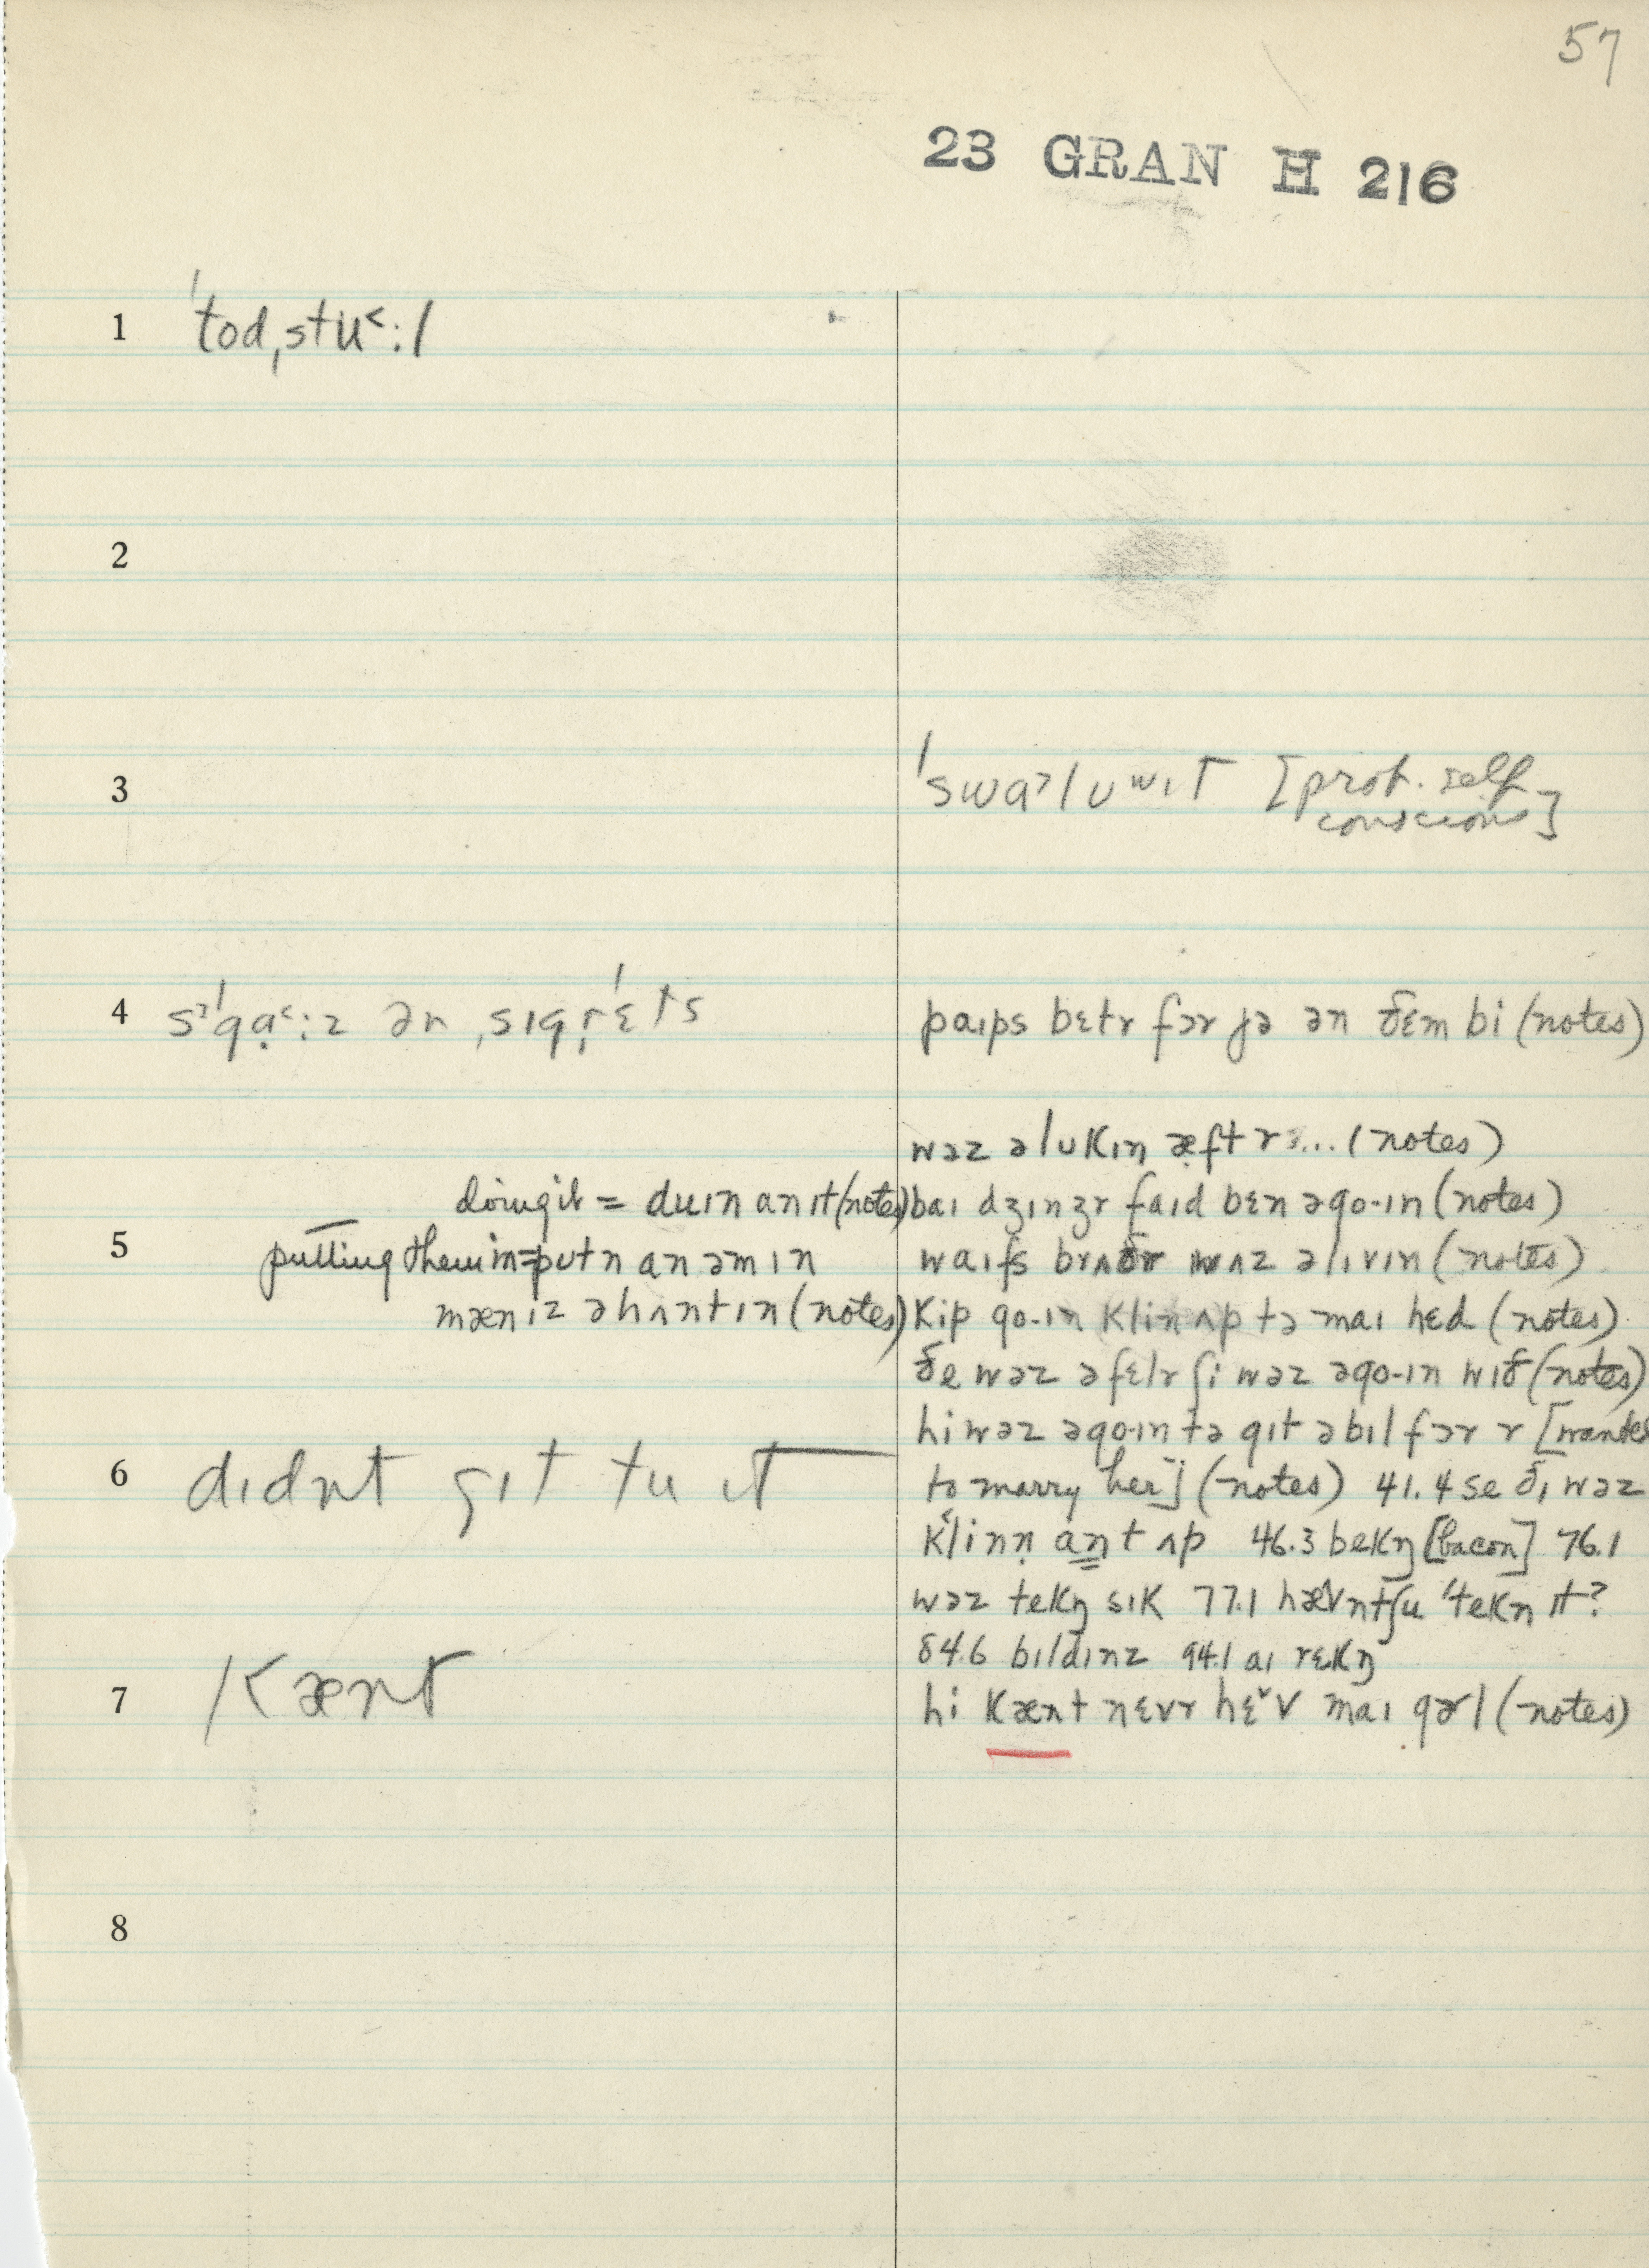 57
23 GRAN H 216
1 ˈtodˌstu˂:l
2
3 ˈswɑ˃lʊʷɪt [prob. self
conscious]
4 sˈɡɑ˂:z ən ˌsɪɡˈrɛts
paɪps bɛtr fər jə ən ðɛm bi (notes)
wəz əlʊkɪn æftr ... (notes)
doing it = duɪn an ɪt (notes)
baɪ dʒɪnʒr faɪd bɛn əɡo-ɪn (notes)
5 putting them in = pʊtn an əm ɪn
waɪfs brʌðr wʌz əlɪvɪn (notes)
mæn ɪz əhʌntɪn (notes)
kip ɡo-ɪn klin ʌp tə maɪ hɛd (notes)
ðe wəz əfɛlr ʃi wəz əɡo-ɪn wɪð (notes)
hi wəz əɡo-ɪn tə ɡɪt əbɪl fər r [wanted
6 dɪdnt ɡɪt tu ɪt
to marry her] (notes) 41.4 se ðɪ wəz
klinn̩ ant ʌp 46.3 bekŋ [bacon] 76.1
wəz tekŋ sɪk 77.1 hævntʃu ˈtekn ɪt?
84.6 bɪldɪnz 94.1 aɪ rɛkŋ
7 kænt
hi kænt nɛvr hɛ˅v maɪ ɡɚl (notes)
8